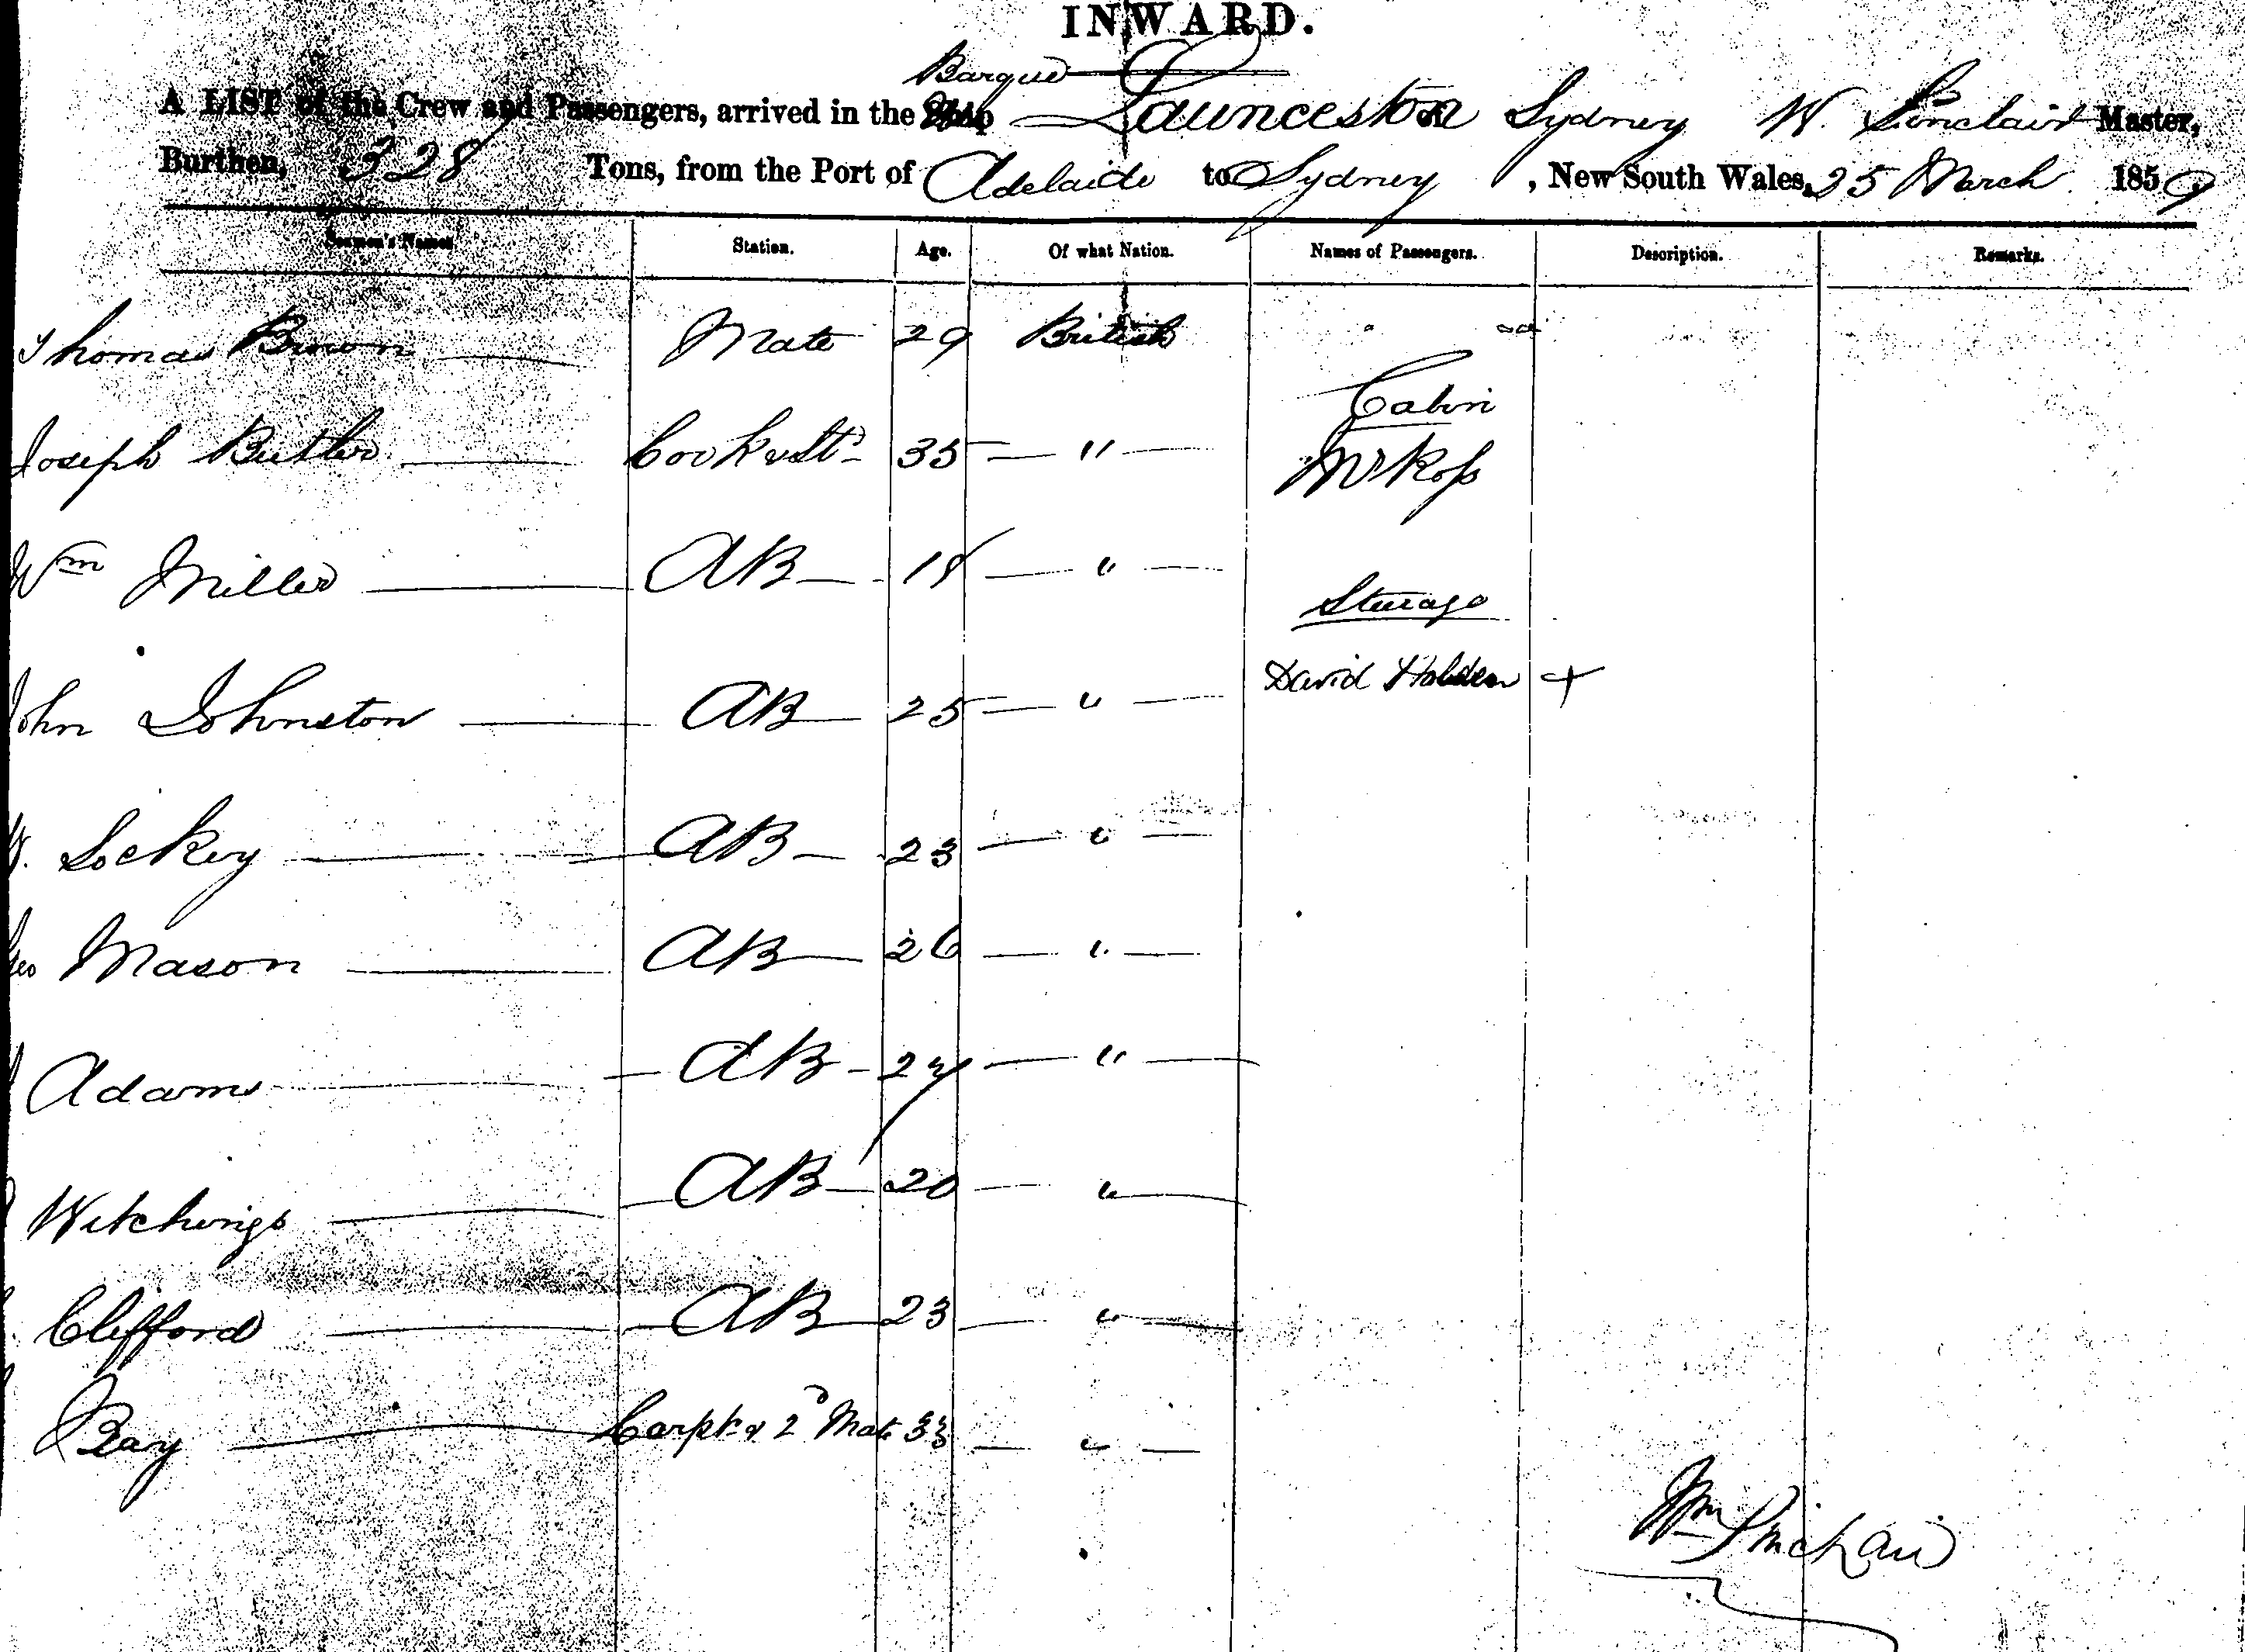 INWARD.
Barque
A LIST of the Crew and Passengers, arrived in the Ship Launceston of Sydney W. Sinclair Master,
Burthen, 328 Tons, from the Port of Adelaide to Sydney, New South Wales, 25 March 1859
Seamen's Names Station. Age. Of what Nation. Names of Passengers. Description. Remarks.
Thomas Brown Mate 29 British
Cabin
Joseph Butler Cook & Std 35 " Mr Ross
Wm Miller AB 18 "
Steerage
David Holden +
John Johnston AB 25 "
W. Lockey AB 23 "
Geo Mason AB 26 "
Adams AB 24 "
Witchings AB 20 "
Clifford AB 23 "
Bay Carpt & 2d Mate 33 "
Wm Sinclair